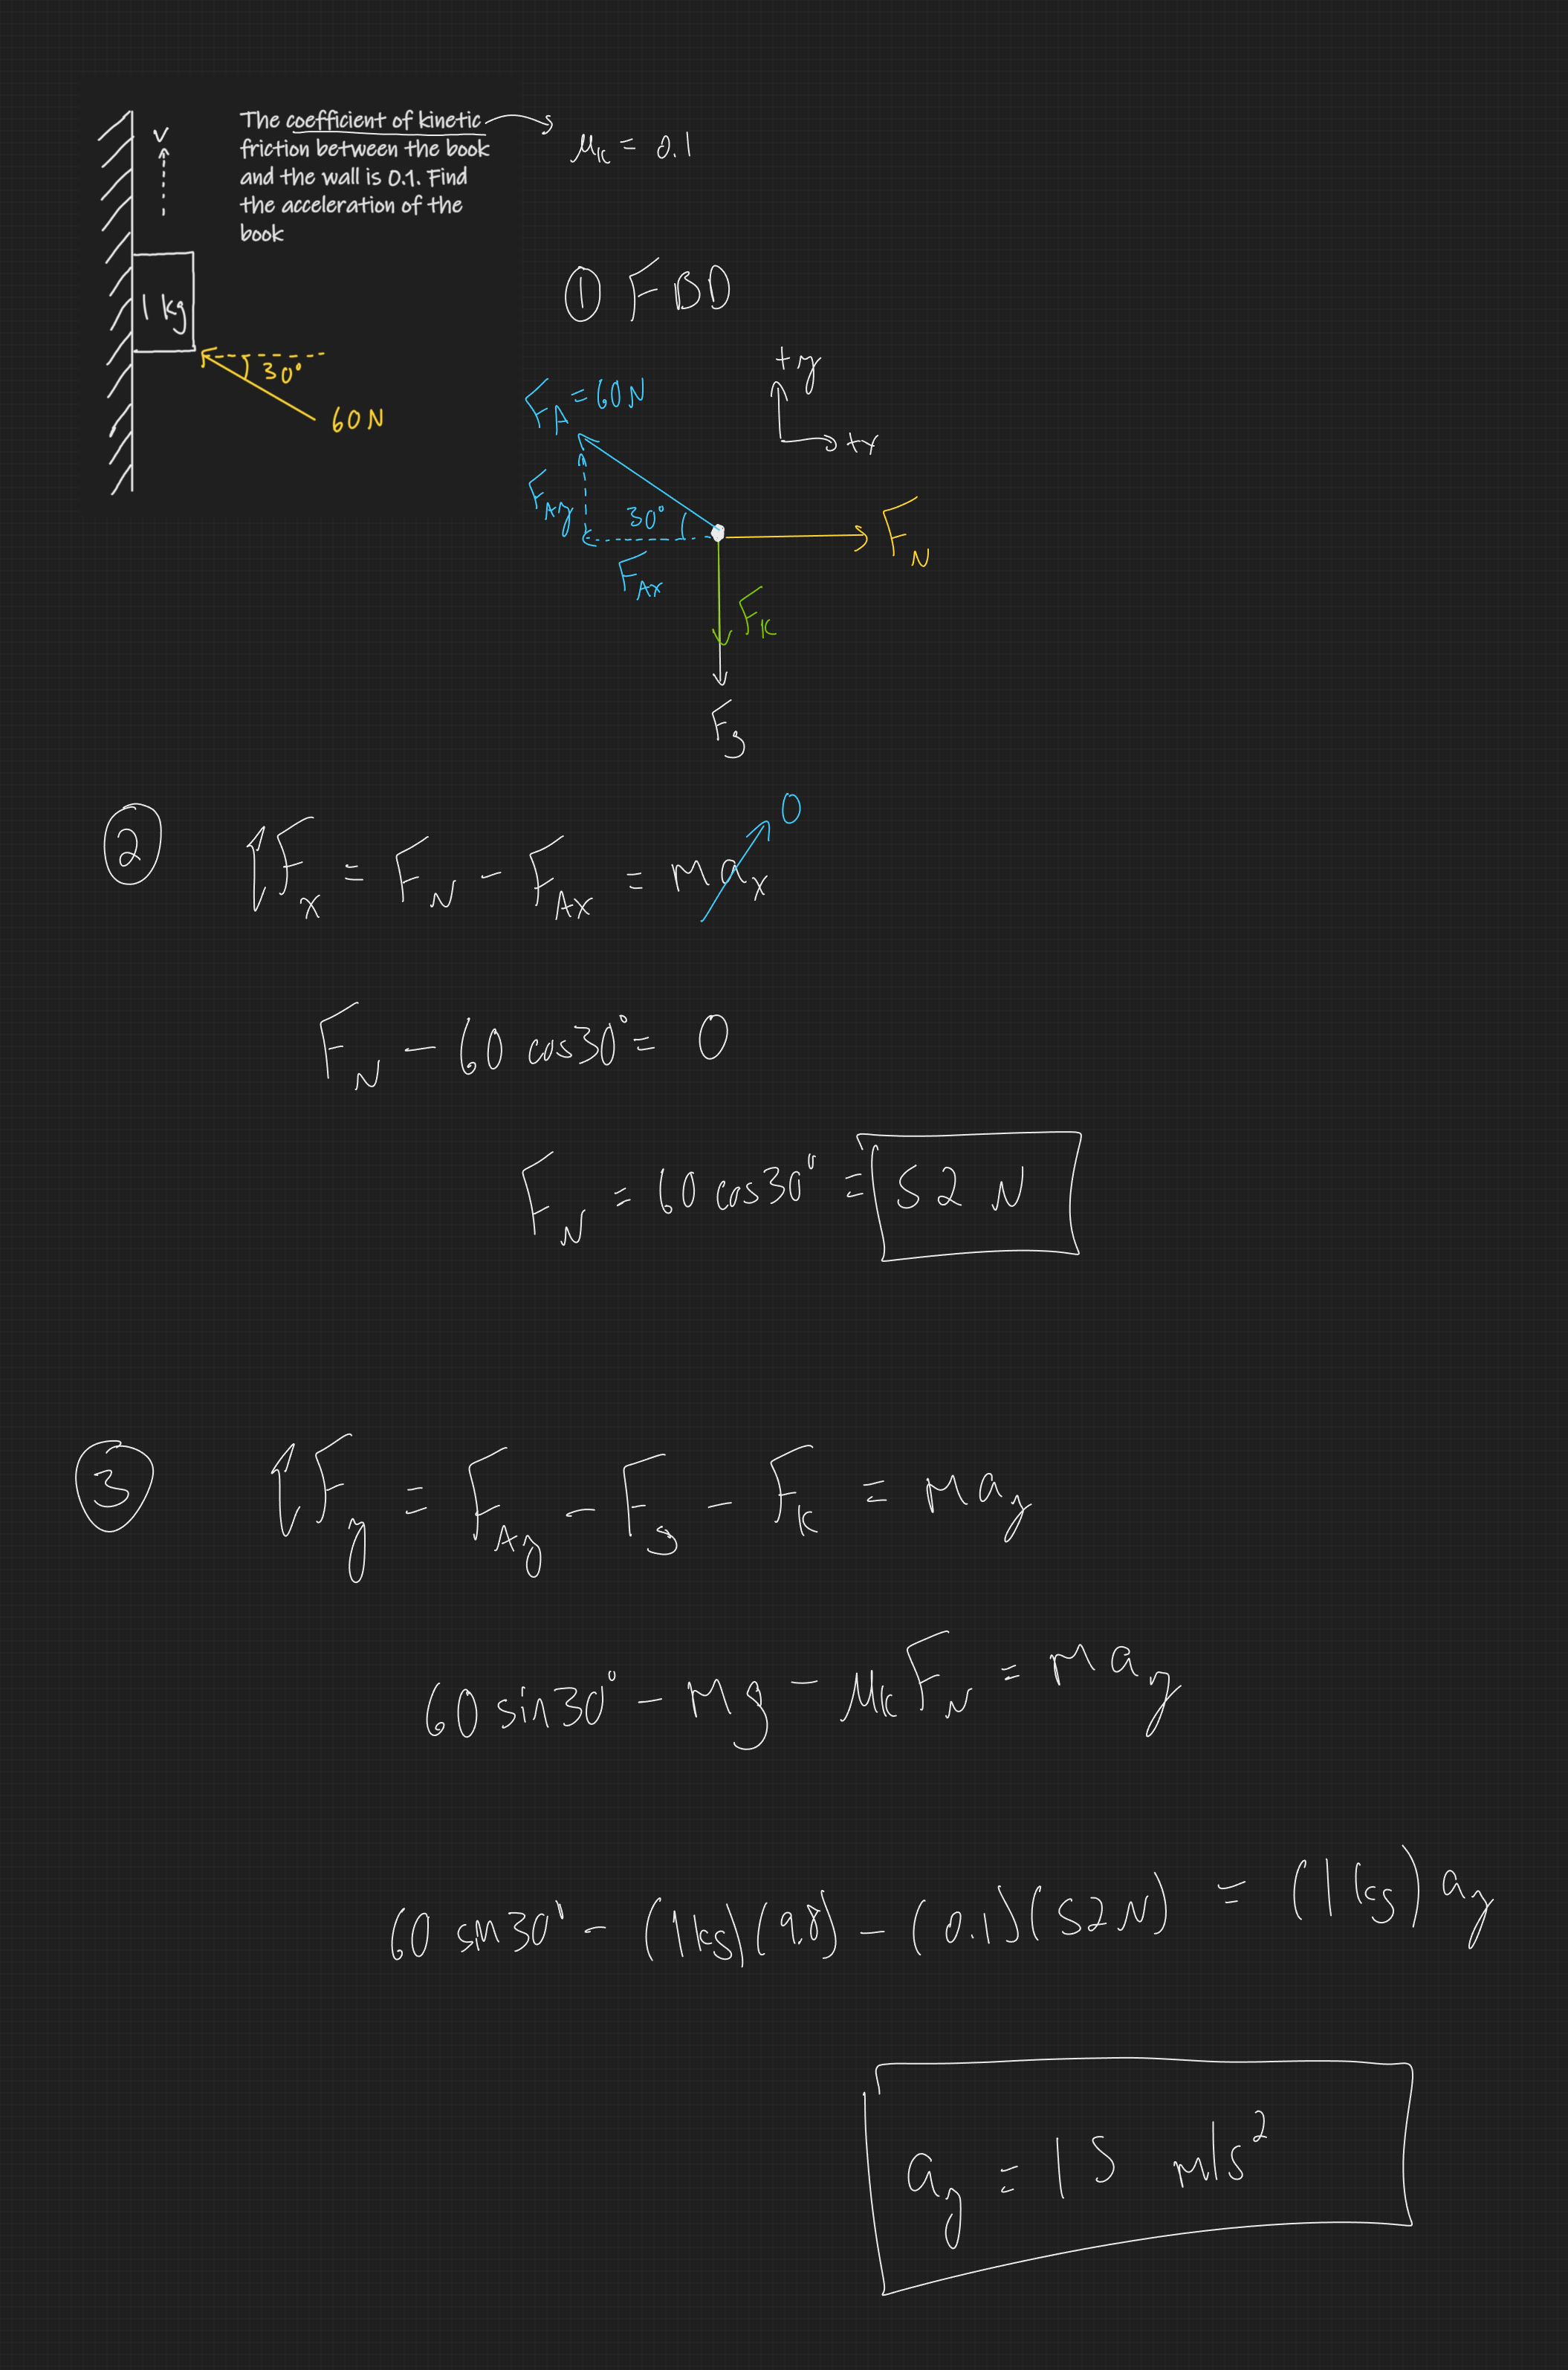 The coefficient of kinetic
friction between the book
and the wall is 0.1. Find
the acceleration of the
book
μk = 0.1
v
1 kg
30°
60N
① FBD
+y
+x
FA = 60N
FAy
30°
FAx
FN
Fk
Fg
② ΣFx = FN - FAx = max 0
FN - 60 cos30° = 0
FN = 60 cos30° = 52 N
③ ΣFy = FAy - Fg - Fk = may
60 sin30° - mg - μkFN = may
60 sin30° - (1kg)(9.8) - (0.1)(52N) = (1kg)ay
ay = 15 m/s²